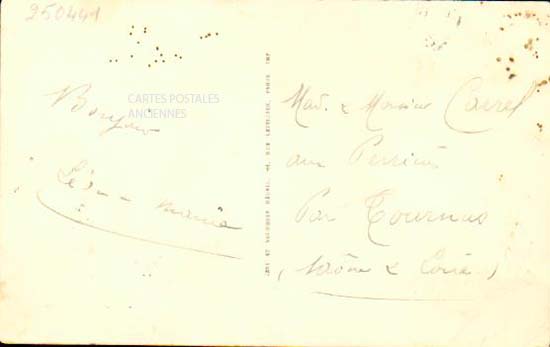 250441
CARTES POSTALES
ANCIENNES
Bonjour
Léon - Maria
Mad. & Monsieur Carrel
aux Perrières
Par Tournus
(Saône & Loire)